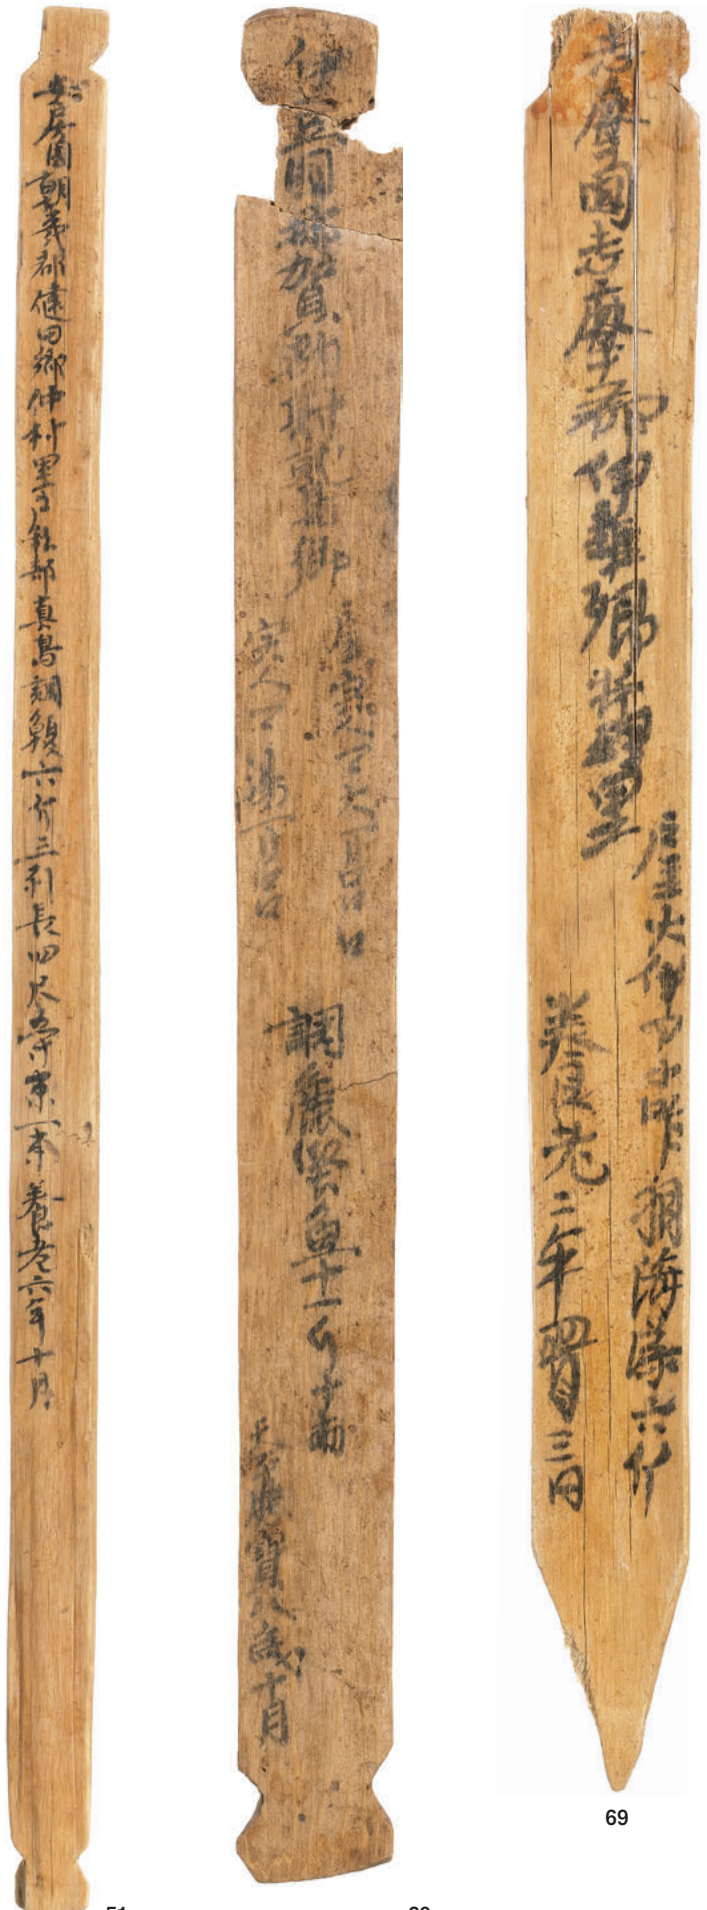 安房国朝夷郡健田郷仲村里戸私部真鳥調鰒六斤三列長四尺五寸束一束養老六年十月
伊豆国那賀郡射鷲郷
戸宍人マ大万呂口
宍人マ湯万呂口
調麁堅魚十一斤十両
天平勝寳八歳十月
志摩国志摩郡伊雑郷理里
戸主大伊マ小咋調海藻六斤
養老二年四月三日
69